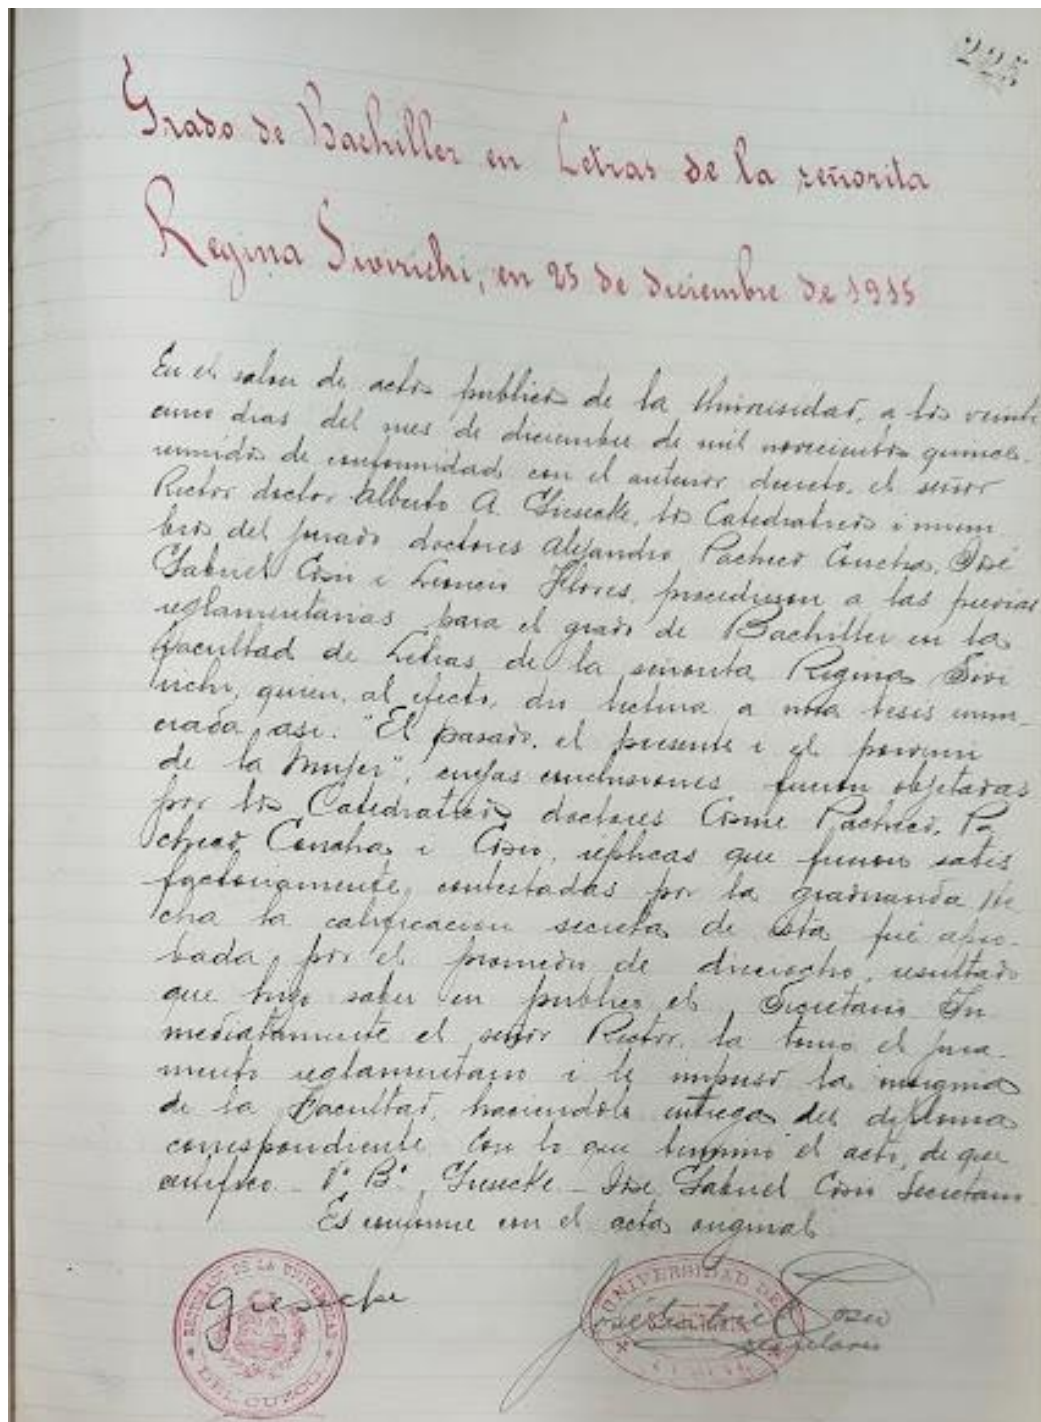 225
Grado de Bachiller en Letras de la señorita
Regina Sivirichi, en 25 de diciembre de 1915
En el salon de actos publicos de la Universidad, a los veinti
cinco dias del mes de diciembre de mil novecientos quince.
reunidos de conformidad con el anterior decreto, el señor
Rector doctor Alberto A. Giesecke, los Catedraticos i miem
bros del jurado doctores Alejandro Pacheco Concha, José
Gabriel Cosio i Leoncio Flores, procedieron a las previas
reglamentarias para el grado de Bachiller en la
Facultad de Letras de la señorita Regina Sivi
richi, quien, al efecto, dio lectura a una tesis enun-
ciada asi: "El pasado, el presente i el porvenir
de la Mujer", cuyas conclusiones fueron objetadas
por los Catedraticos doctores Cosme Pacheco, Pa
checo Concha i Cosio, replicas que fueron satis
factoriamente contestadas por la graduanda. He
cha la calificacion secreta de esta fué apro-
bada por el promedio de dieciocho, resultado
que hizo saber en publico el Secretario. In
mediatamente el señor Rector, la tomó el jura-
mento reglamentario i le impuso la insignia
de la Facultad, haciendole entrega del diploma
correspondiente. Con lo que terminó el acto, de que
certifico. V° B° Giesecke - José Gabriel Cosio Secretario
Es conforme con el acta original
RECTORADO DE LA UNIVERSIDAD DEL CUZCO
Giesecke
UNIVERSIDAD DEL
José Gabriel Cosio